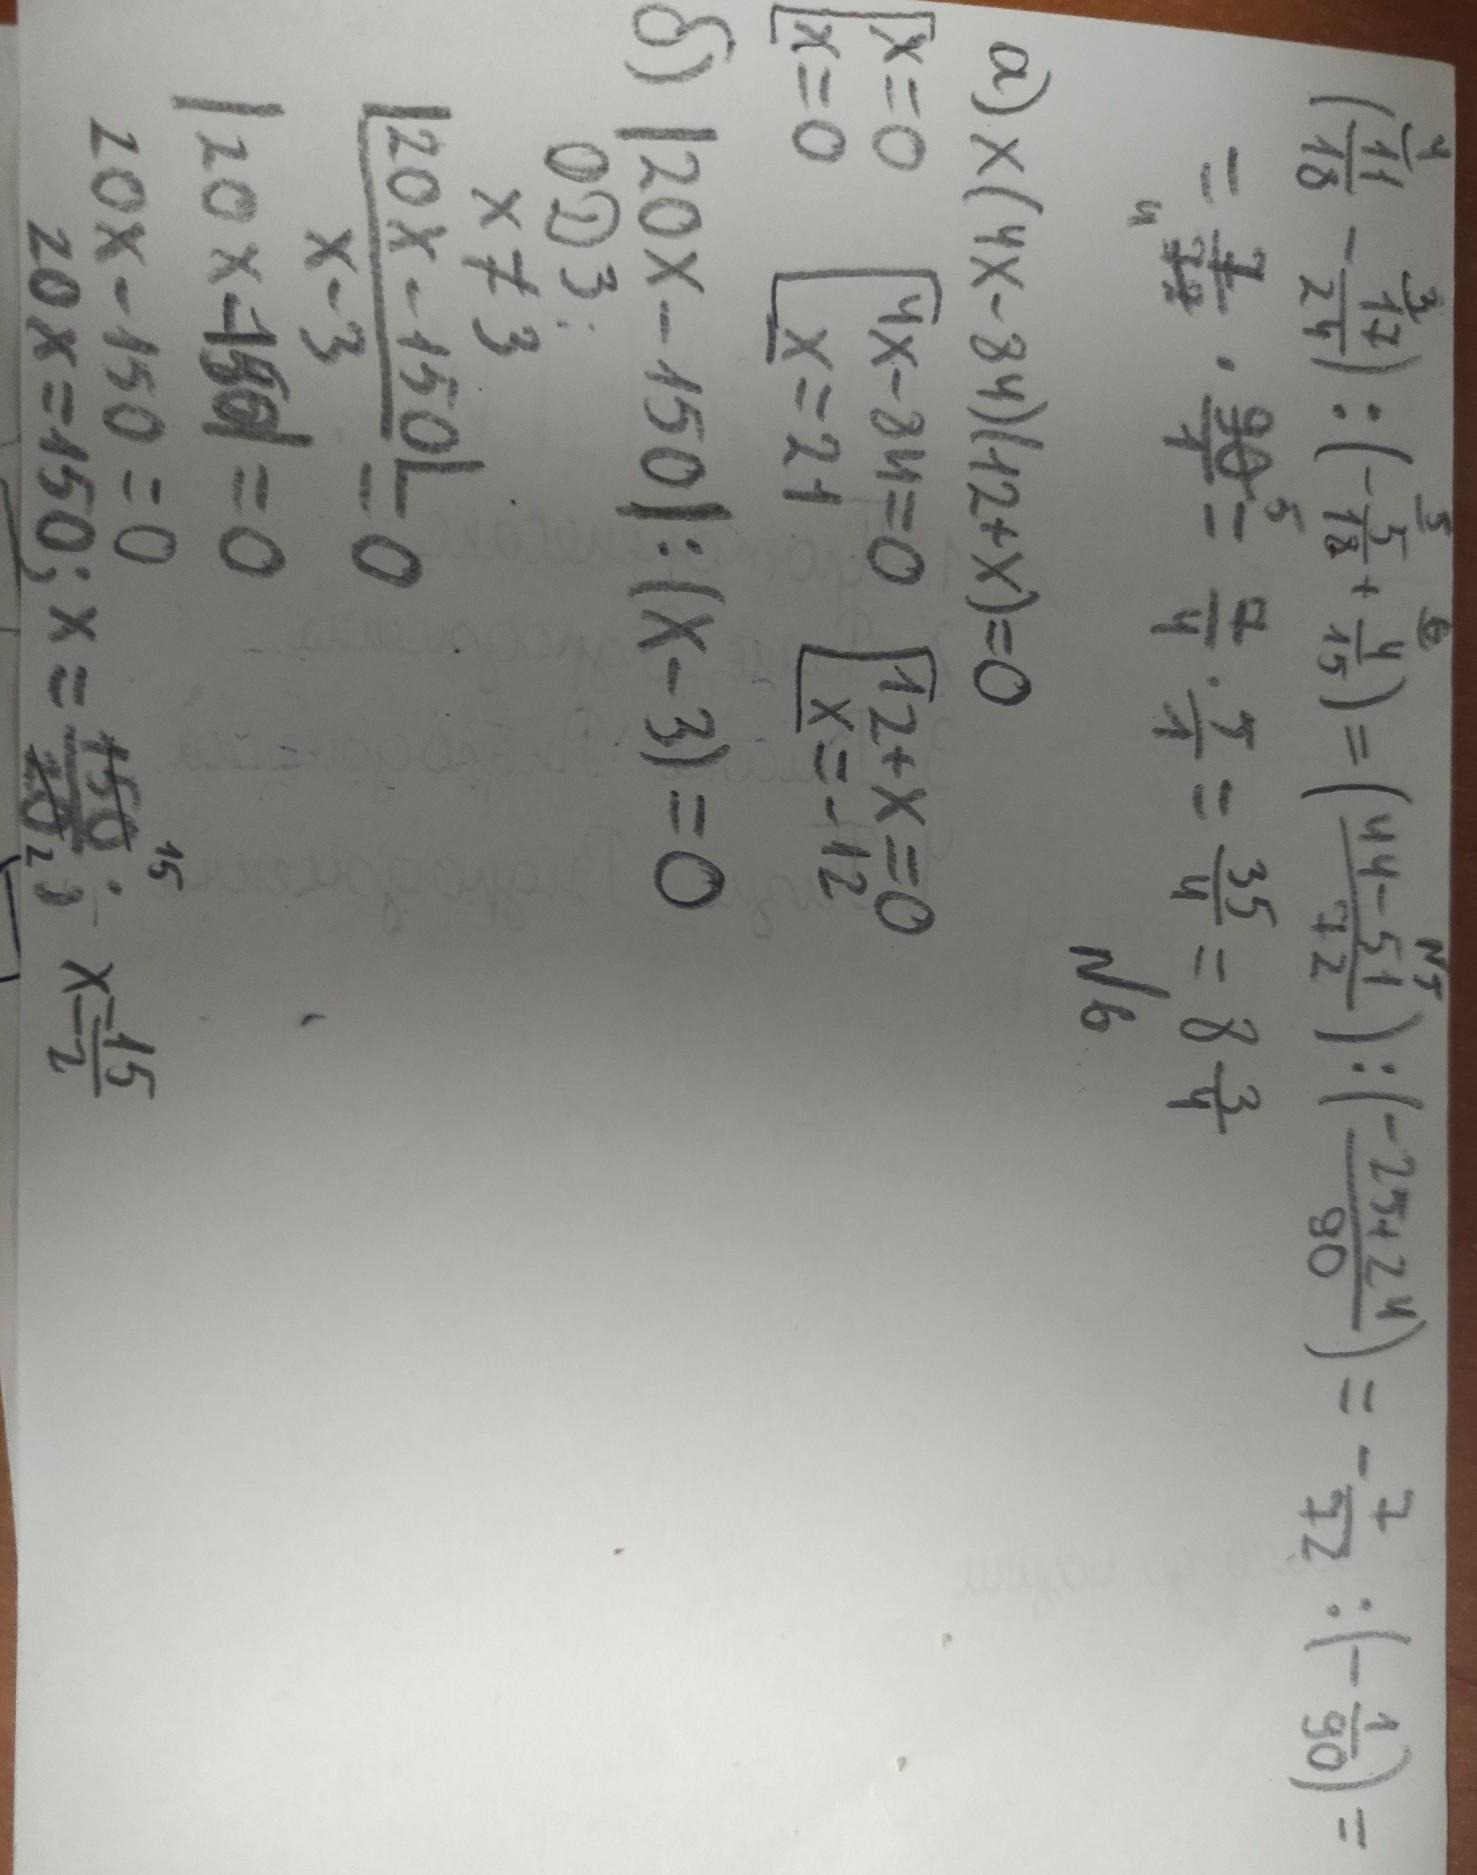 N5
(11/18 - 17/24) : (-5/18 + 4/15) = (44-51/72) : (-25+24/90) = -7/72 : (-1/90) =
= 7/72 · 90/1 = 7/4 · 5/1 = 35/4 = 8 3/4
N6
а) x(4x-84)(12+x)=0
[x=0 [4x-84=0 [12+x=0
[x=0 [x=21 [x=-12
б) |20x-150|:(x-3)=0
ОДЗ:
x≠3
|20x-150|/x-3 = 0
|20x-150|=0
20x-150=0
20x=150; x=150/20; x=15/2